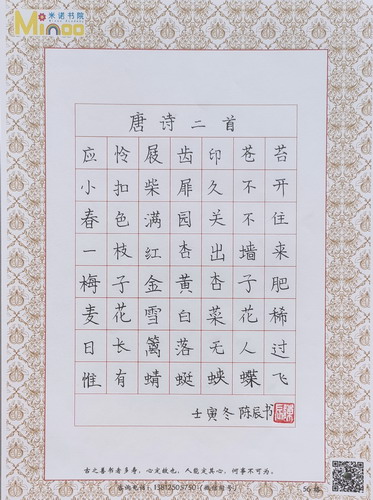 米诺书院
Minoo
唐诗二首
应怜屐齿印苍苔
小扣柴扉久不开
春色满园关不住
一枝红杏出墙来
梅子金黄杏子肥
麦花雪白菜花稀
日长篱落无人过
惟有蜻蜓蛱蝶飞
壬寅冬 陈辰书
古之善书者多寿，心定故也，人能定其心，何事不可为。